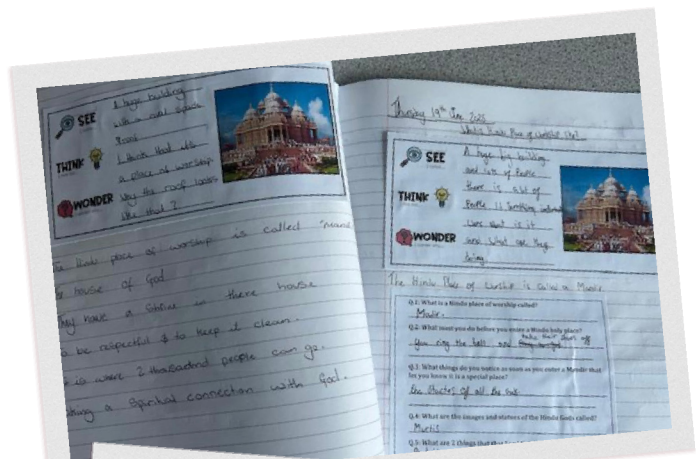 SEE
THINK
WONDER
A huge building
with a
roof
I think that its
a place of worship
Why the roof looks
like that ?
Hindu place of worship is called
house of God
They have a shrine in there house
be respectful $ to keep it clean.
is where 2 thousand people can go.
a Spiritual connection with God.
Thursday 19th June 2025
Place of worship
SEE
THINK
WONDER
A huge big building
and lots of People
there is a lot of
People is Something
what is it
what are they
doing
The Hindu Place of Worship is Called a Mandir
Q.1: What is a Hindu place of worship called?
Madir.
Q.2: What must you do before you enter a Hindu holy place?
You ring the bell and take their shoes off
Q.3: What things do you notice as soon as you enter a Mandir that
let you know it is a special place?
the Statues of all the Gods
Q.4: What are the images and statues of the Hindu Gods called?
Murtis
Q.5: What are 2 things that